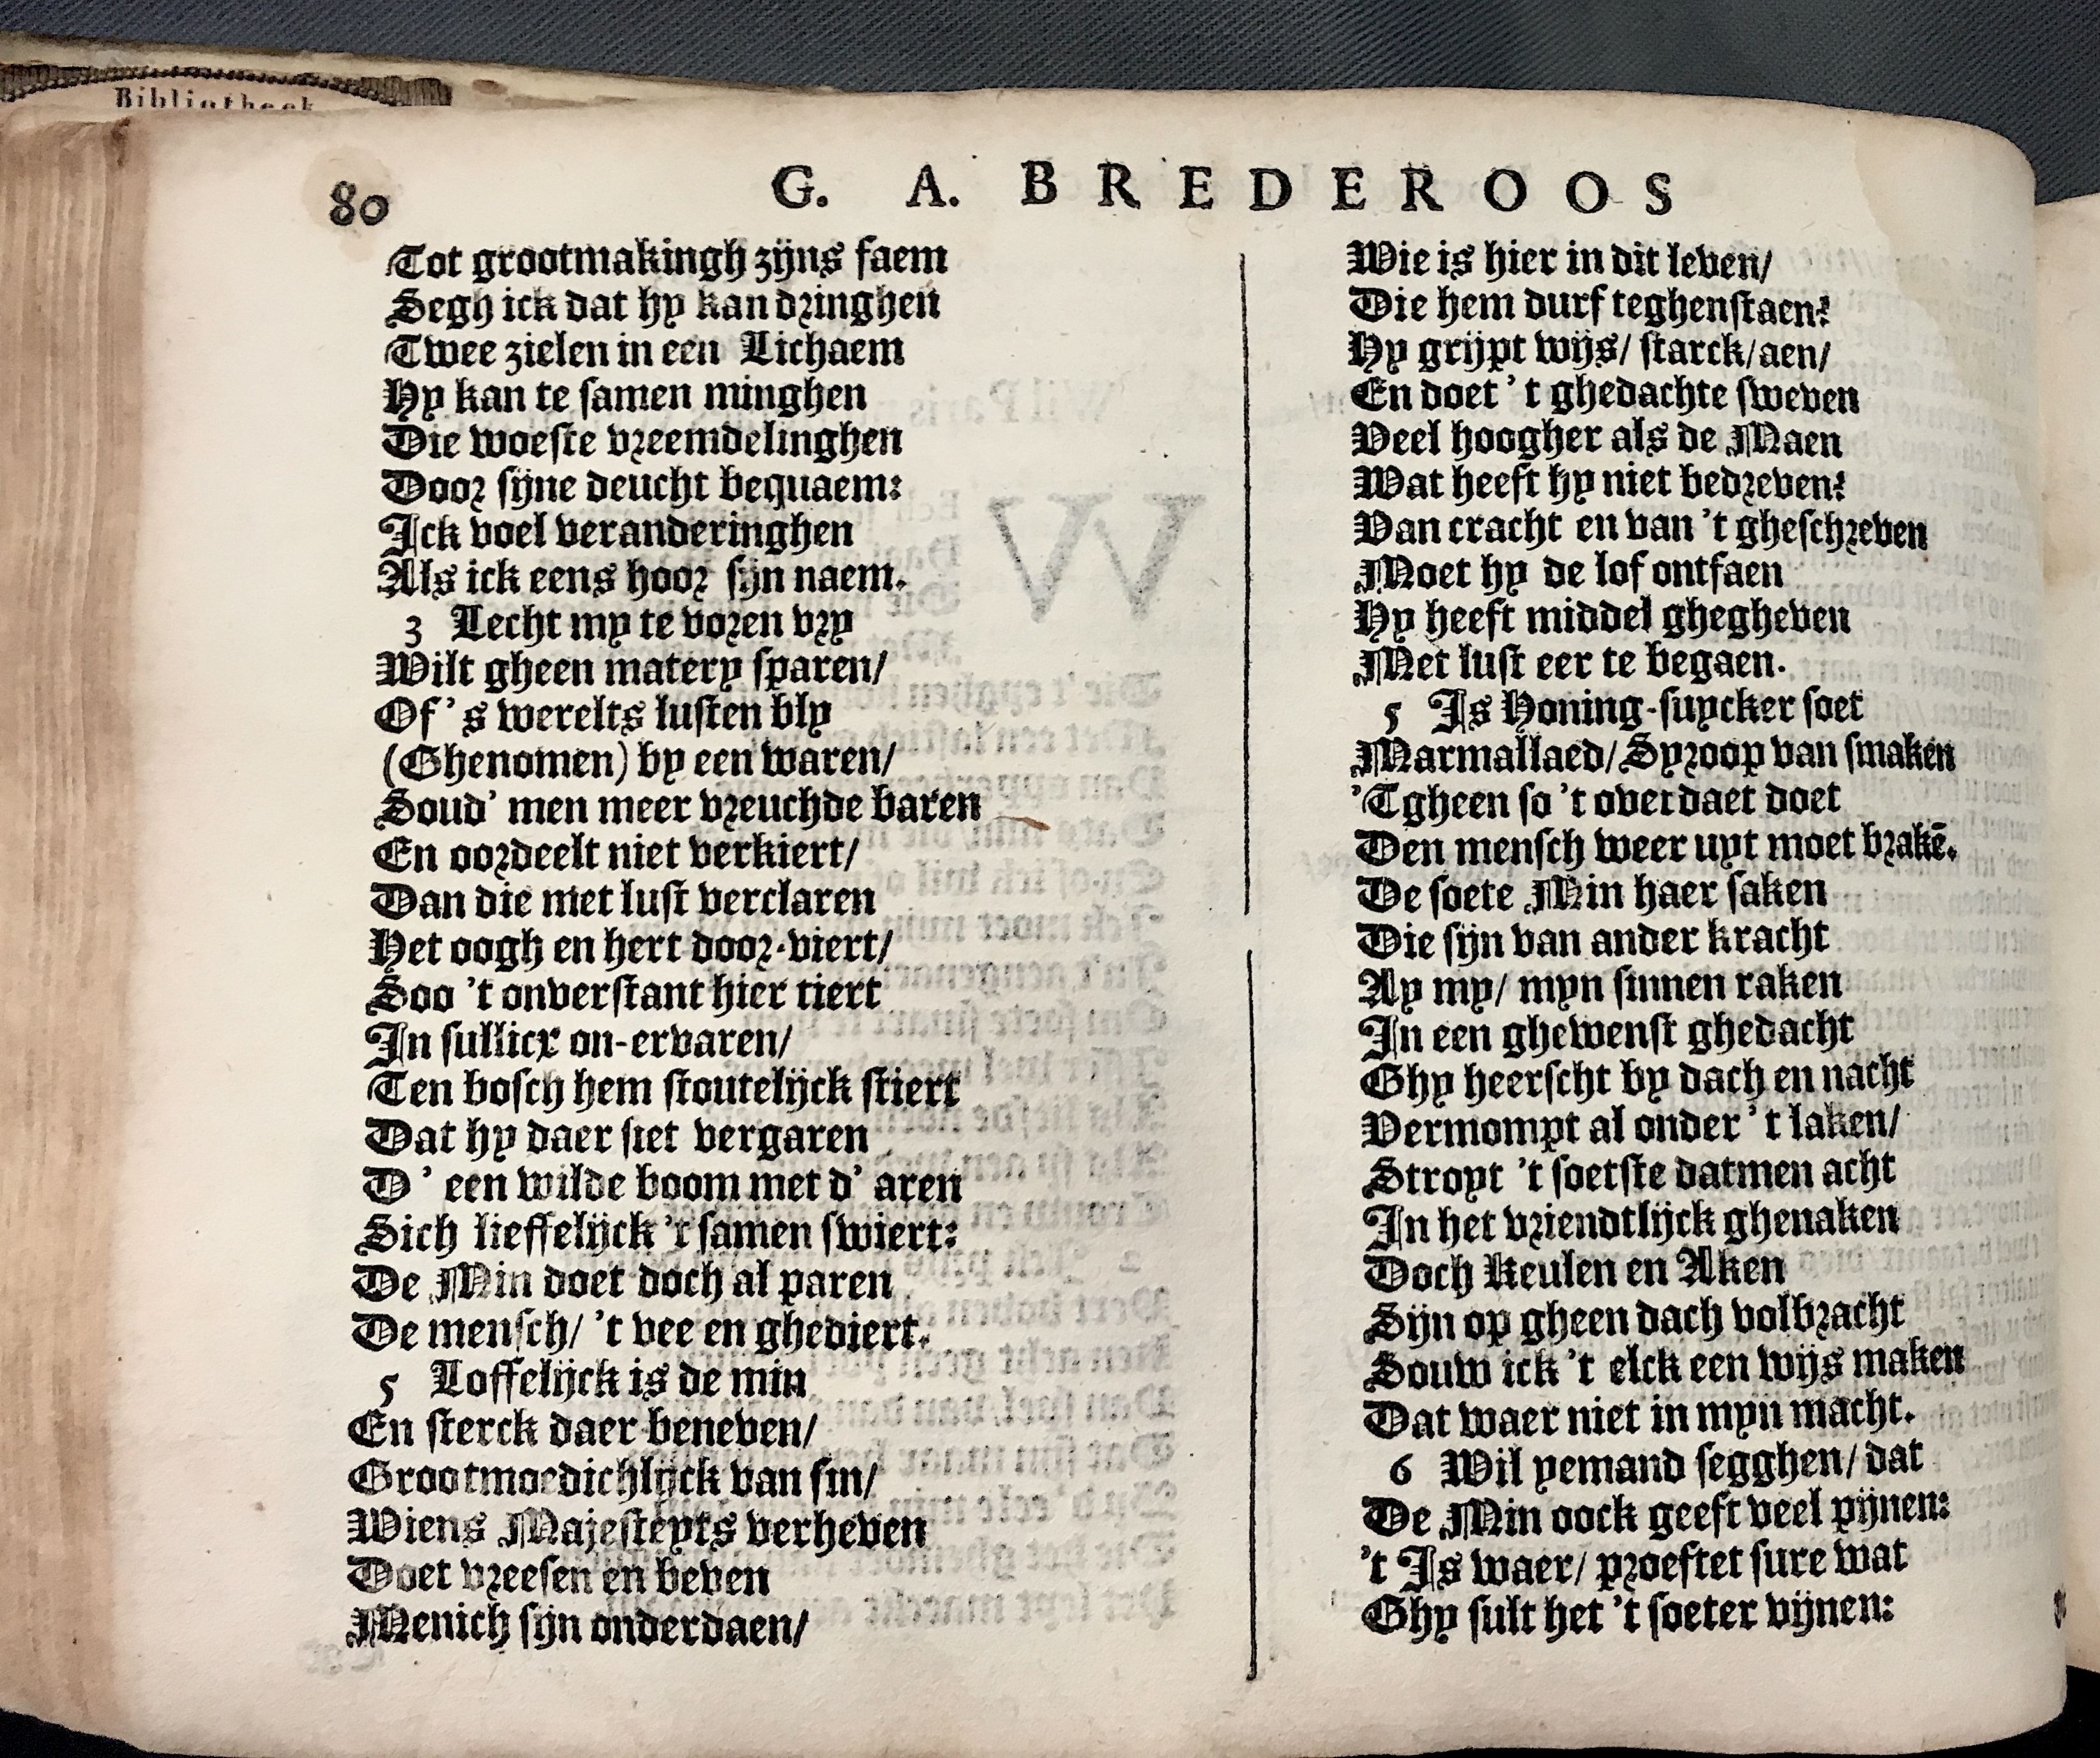 Bibliotheek
80
G. A. BREDEROOS
Tot grootmakingh zijns faem
Segh ick dat hy kan dringhen
Twee zielen in een Lichaem
Hy kan te samen minghen
Die woeste vreemdelinghen
Door sijne deucht bequaem:
Ick voel veranderinghen
Als ick eens hoor sijn naem.
3 Lecht my te voren vry
Wilt gheen matery sparen/
Of 's werelts lusten bly
(Ghenomen) by een waren/
Soud' men meer vreuchde baren
En oordeelt niet verkiert/
Dan die met lust verclaren
Het oogh en hert door-viert/
Soo 't onverstant hier tiert
In sullicx on-ervaren/
Ten bosch hem stoutelijck stiert
Dat hy daer siet vergaren
D' een wilde boom met d' aren
Sich lieffelijck 't samen swiert:
De Min doet doch al paren
De mensch/ 't vee en ghediert.
5 Loffelijck is de min
En sterck daer beneven/
Grootmoedichlijck van sin/
Wiens Majesteyts verheven
Doet vreesen en beven
Menich sijn onderdaen/
Wie is hier in dit leven/
Die hem durf teghenstaen?
Hy grijpt wijs/ starck/aen/
En doet 't ghedachte sweven
Veel hoogher als de Maen
Wat heeft hy niet bedreven?
Van cracht en van 't gheschreven
Moet hy de lof ontfaen
Hy heeft middel ghegheven
Met lust eer te begaen.
5 Is Honing-suycker soet
Marmallaed/Syroop van smaken
'Tgheen so 't overdaet doet
Den mensch weer uyt moet brakē.
De soete Min haer saken
Die sijn van ander kracht
Ay my/ myn sinnen raken
In een ghewenst ghedacht
Ghy heerscht by dach en nacht
Vermompt al onder 't laken/
Stropt 't soetste datmen acht
In het vriendtlijck ghenaken
Doch Keulen en Aken
Sijn op gheen dach volbracht
Souw ick 't elck een wijs maken
Dat waer niet in myn macht.
6 Wil yemand segghen/ dat
De Min oock geeft veel pijnen:
't Is waer/ proeftet sure wat
Ghy sult het 't soeter vijnen: